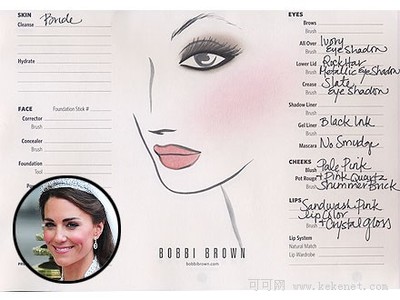 SKIN
Cleanse Bride
Hydrate
FACE Foundation Stick #
Corrector
Brush
Concealer
Brush
Foundation
Tool
EYES
Brows
Brush
All Over Ivory
Brush eyeshadow
Lower Lid Rockstar
Brush Metallic eyeshadow
Crease Slate
Brush eyeshadow
Shadow Liner
Brush
Gel Liner Black Ink
Brush
Mascara No Smudge
CHEEKS
Blush Pale Pink
Brush
Pot Rouge + Pink Quartz
Brush Shimmer Brick
LIPS
Sandwash Pink
lip color
+ Crystal gloss
Lip System
Natural Match
Lip Wardrobe
BOBBI BROWN
bobbibrown.com
可可网 www.kekenet.com